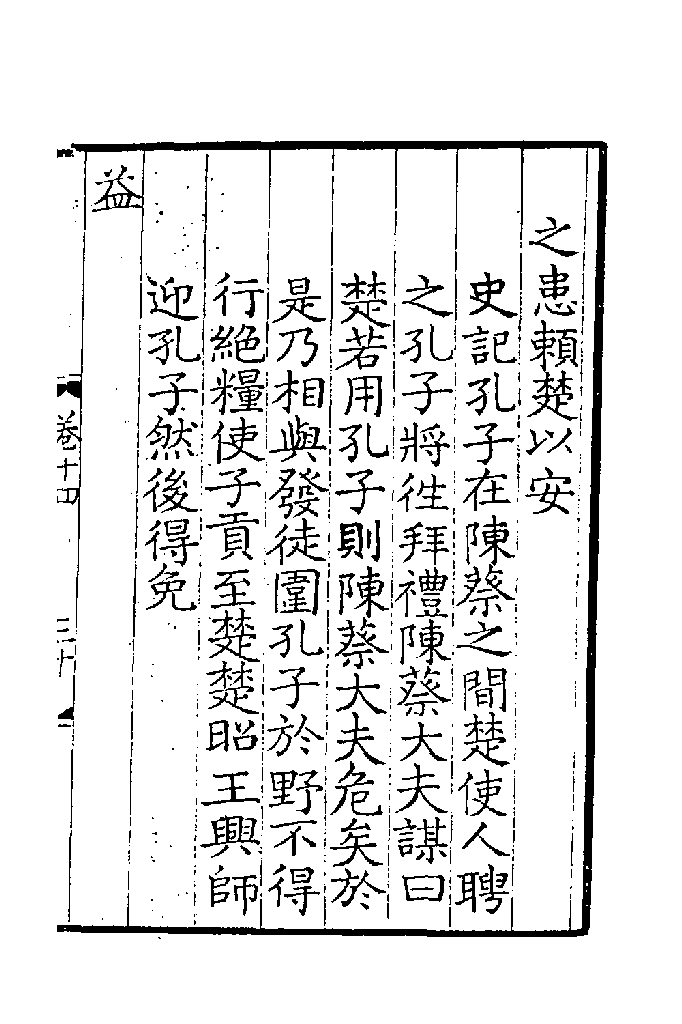 之患頼楚以安
史記孔子在陳蔡之間楚使人聘
之孔子將徃拜禮陳蔡大夫謀曰
楚若用孔子則陳蔡大夫危矣於
是乃相與發徒圍孔子於野不得
行絶糧使子貢至楚楚昭王興師
迎孔子然後得免
益
卷十四
三十